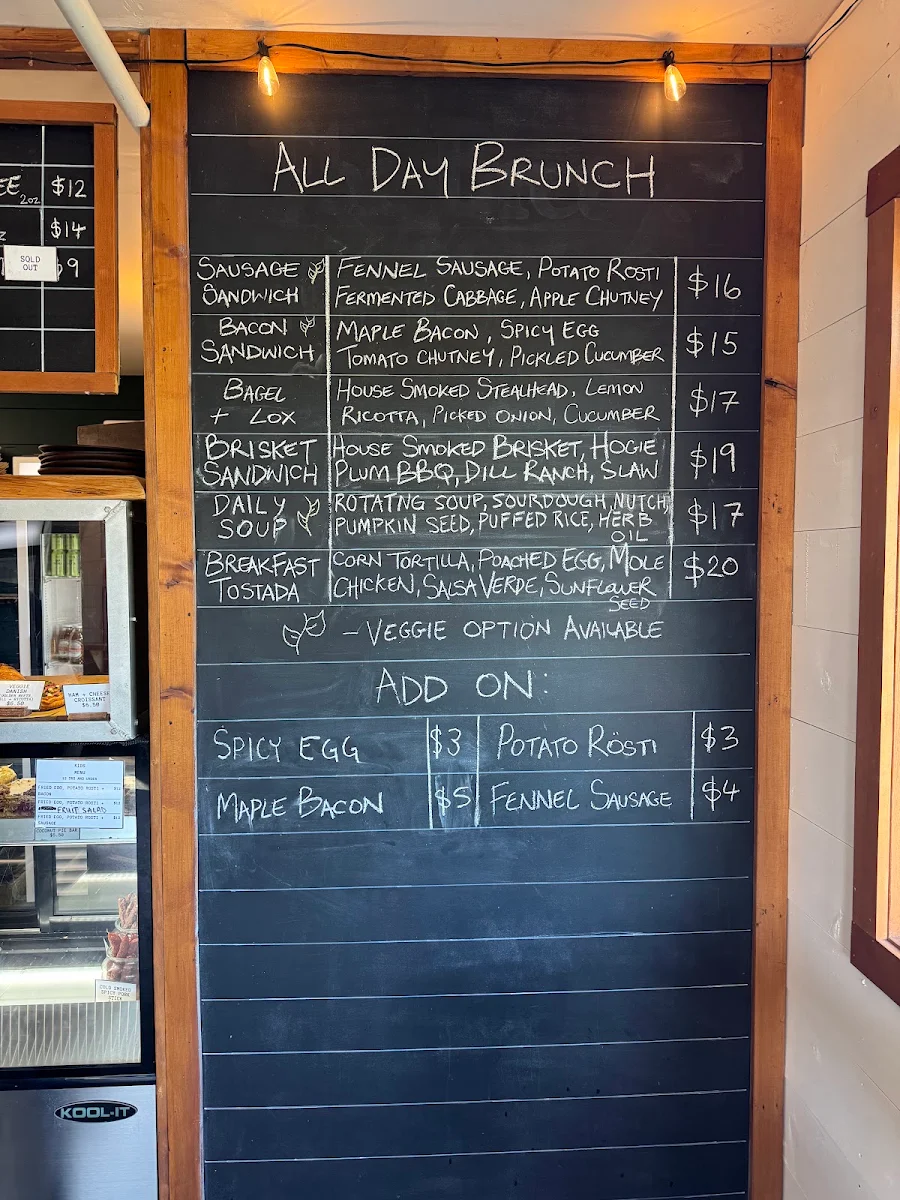 ALL DAY BRUNCH
SAUSAGE SANDWICH
FENNEL SAUSAGE, POTATO ROSTI
FERMENTED CABBAGE, APPLE CHUTNEY
$16
BACON SANDWICH
MAPLE BACON, SPICY EGG
TOMATO CHUTNEY, PICKLED CUCUMBER
$15
BAGEL + LOX
HOUSE SMOKED STEALHEAD, LEMON
RICOTTA, PICKED ONION, CUCUMBER
$17
BRISKET SANDWICH
HOUSE SMOKED BRISKET, HOGIE
PLUM BBQ, DILL RANCH, SLAW
$19
DAILY SOUP
ROTATNG SOUP, SOURDOUGH, NUTCH,
PUMPKIN SEED, PUFFED RICE, HERB
OIL
$17
BREAKFAST TOSTADA
CORN TORTILLA, POACHED EGG, MOLE
CHICKEN, SALSA VERDE, SUNFLOWER
SEED
$20
- VEGGIE OPTION AVAILABLE
ADD ON:
SPICY EGG $3 POTATO RÖSTI $3
MAPLE BACON $5 FENNEL SAUSAGE $4
EE 2oz $12
$14
SOLD
OUT
9
VEGGIE
DANISH
$6.50
HAM + CHEESE
CROISSANT
$6.50
KIDS
MENU
12 YRS AND UNDER
FRIED EGG, POTATO ROSTI +
BACON
FRIED EGG, POTATO ROSTI +
FRUIT SALAD
FRIED EGG, POTATO ROSTI +
SAUSAGE
COCONUT PIE BAR
$6.50
COLD SMOKED
SPICY PORK
STICK
KOOL-IT